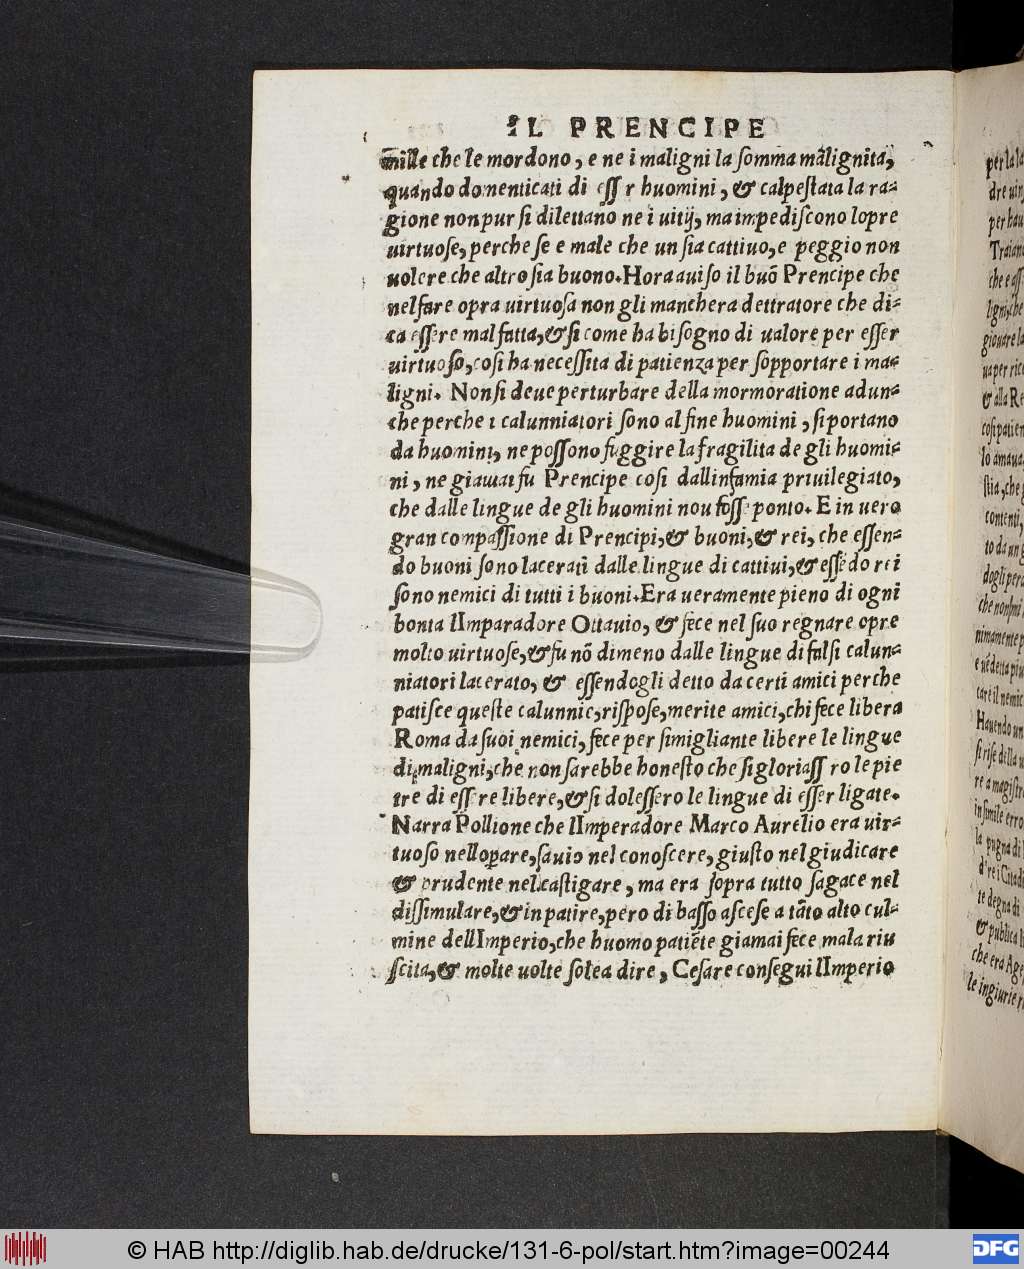 IL PRENCIPE
mille che le mordono, e ne i maligni la somma mãlignita,
quando domenticati di ess r huomini, & calpestata la ra=
gione non pur si dilettano ne i uitij, ma impediscono lopre
uirtuose, perche se e male che un sia cattiuo, e peggio non
uolere che altro sia buono. Hora auiso il buõ Prencipe che
nel fare opra uirtuosa non gli manchera dettratore che di=
ca essere mal fatta, & si come ha bisogno di ualore per esser
uirtuoso, cosi ha necessita di patienza per sopportare i ma=
ligni. Non si deue perturbare della mormoratione adun=
che perche i calunniatori sono al fine huomini, si portano
da huomini, ne possono fuggire la fragilita de gli huomi=
ni, ne giamai fu Prencipe cosi dallinfamia priuilegiato,
che dalle lingue de gli huomini nou fosse ponto. E in uero
gran compassione di Prencipi, & buoni, & rei, che essen=
do buoni sono lacerati dalle lingue di cattiui, & essẽdo rei
sono nemici di tutti i buoni. Era ueramente pieno di ogni
bonta lImparadore Ottauio, & fece nel suo regnare opre
molto uirtuose, & fu nõ dimeno dalle lingue di falsi calun=
niatori lacerato, & essendogli detto da certi amici perche
patisce queste calunnie, rispose, merite amici, chi fece libera
Roma da suoi nemici, fece per simigliante libere le lingue
di maligni, che non sarebbe honesto che si gloriass ro le pie
tre di essere libere, & si dolessero le lingue di esser ligate.
Narra Pollione che lImperadore Marco Aurelio era uir=
tuoso nellopare, sauio nel conoscere, giusto nel giudicare
& prudente nel castigare, ma era sopra tutto sagace nel
dissimulare, & in patire, pero di basso ascese a tãto alto cul=
mine dellImperio, che huomo patiẽte giamai fece mala riu
scita, & molte uolte solea dire, Cesare consegui lImperio
© HAB http://diglib.hab.de/drucke/131-6-pol/start.htm?image=00244
DFG